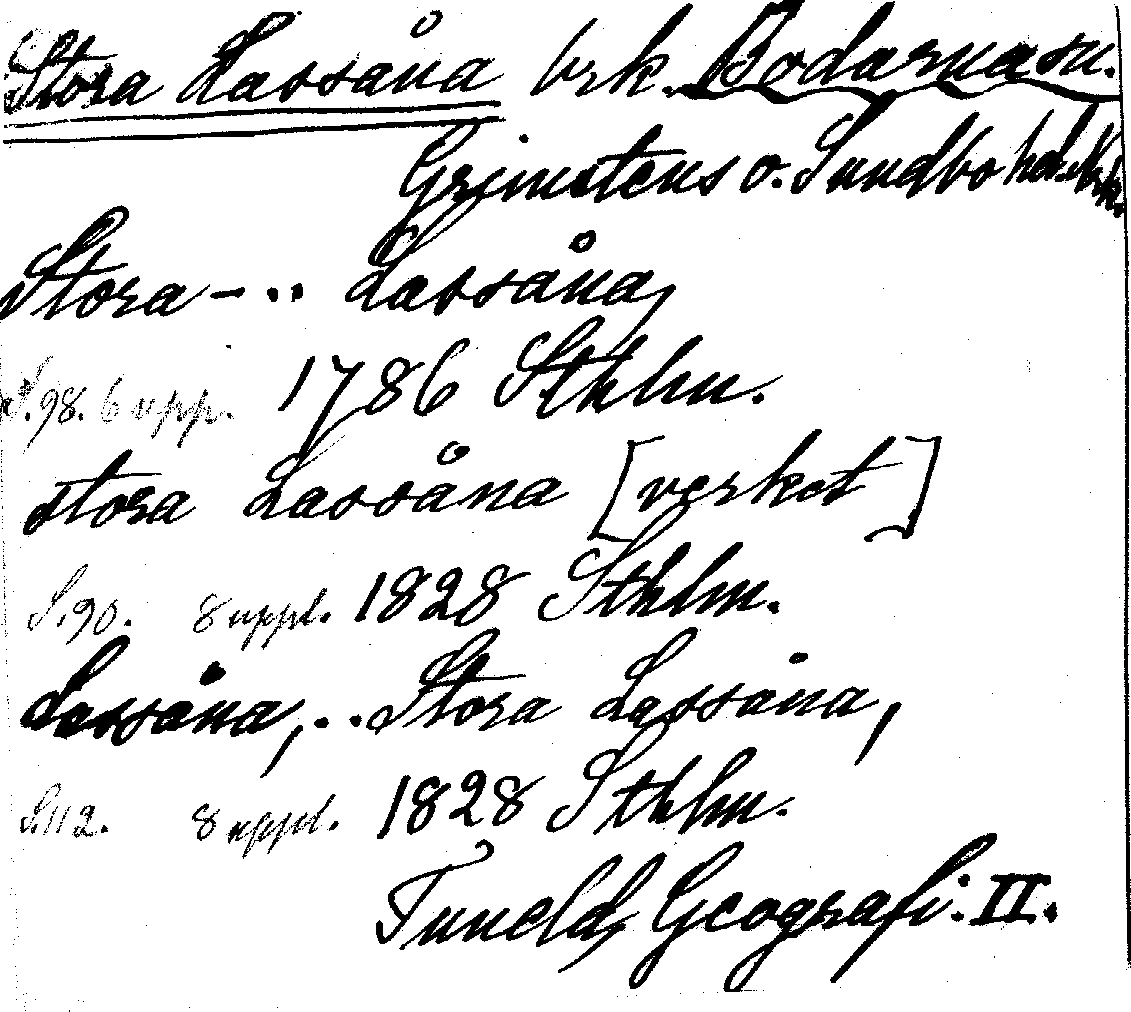 Stora Lassåna brk. Bodarna sn.
Grimstens o. Sundbo hd. Nrk.
Stora - .. Lassåna,
S. 98. 6 upp. 1786 Sthlm.
stora Lassåna [verket]
S. 90. 8 uppl. 1828 Sthlm.
Lassåna, .. Stora Lassåna,
S. 112. 8 uppl. 1828 Sthlm.
Tuneld, Geografi: II.